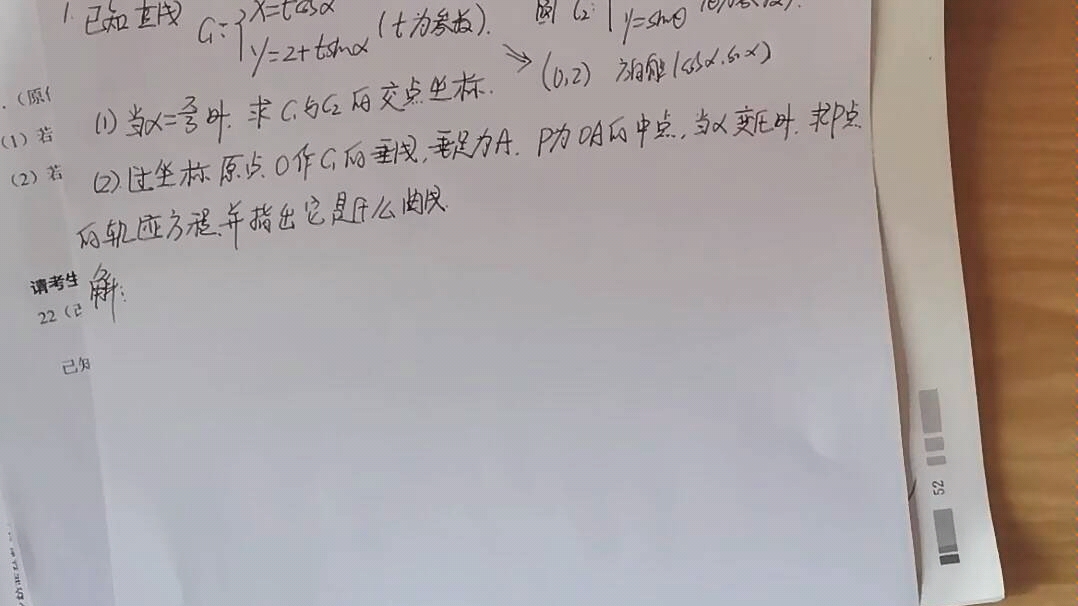 1. 已知直线 C₁:{x=tcosα
y=2+tsinα (t为参数). 圆C₂:{
y=sinθ
⇒ (0,2) 方向角(cosα,sinα)
(1)当α=π/3时. 求C₁与C₂的交点坐标.
(2).过坐标原点O作C₁的垂线,垂足为A. P为OA的中点,当α变化时. 求P点
的轨迹方程,并指出它是什么曲线.
解:
.（原
（1）若
（2）若
请考生
22（已
已知
52